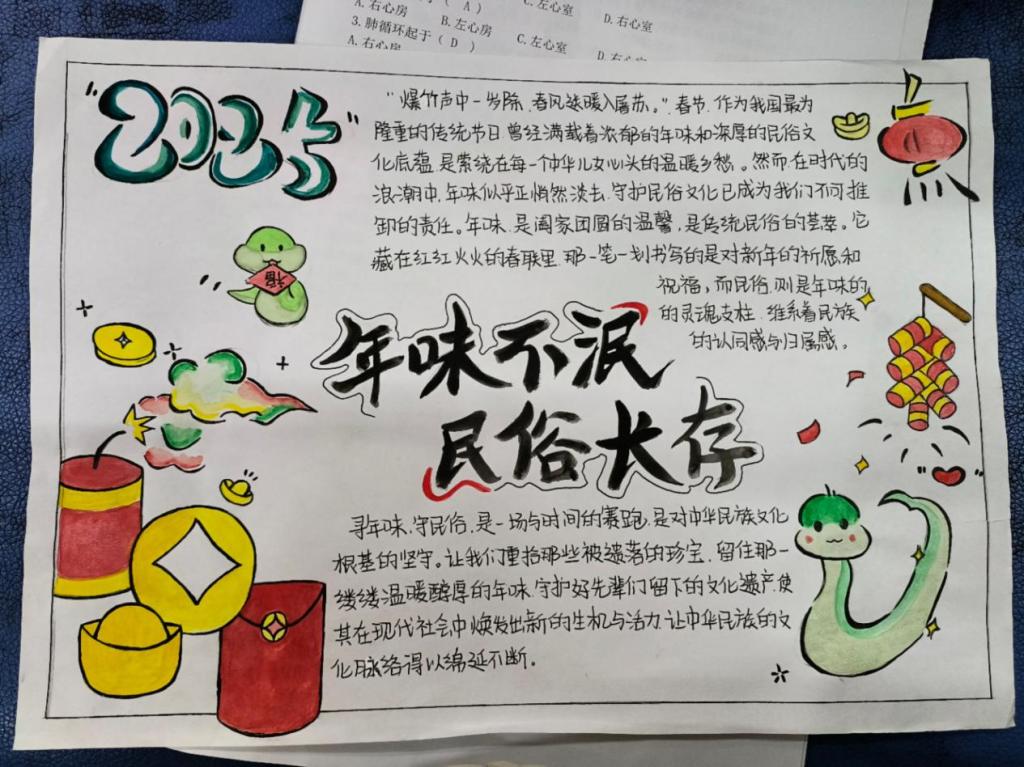 A.右心房 B.左心房 C.左心室 D.右心室
3.肺循环起于( D )
A.右心房 C.左心室 D.右心室
"2025"
"爆竹声中一岁除,春风送暖入屠苏。"春节,作为我国最为
隆重的传统节日曾经满载着浓郁的年味和深厚的民俗文
化底蕴,是萦绕在每一个中华儿女心头的温暖乡愁。然而在时代的
浪潮中,年味似乎正悄然淡去,守护民俗文化已成为我们不可推
卸的责任。年味,是阖家团圆的温馨,是传统民俗的荟萃。它
藏在红红火火的春联里,那一笔一划书写的是对新年的祈愿和
祝福,而民俗,则是年味的
的灵魂支柱,维系着民族
的认同感与归属感。
福
年味不泯
民俗长存
寻年味,守民俗,是一场与时间的赛跑,是对中华民族文化
根基的坚守。让我们重拾那些被遗落的珍宝,留住那一
缕缕温暖醇厚的年味,守护好先辈们留下的文化遗产,使
其在现代社会中焕发出新的生机与活力,让中华民族的文
化脉络得以绵延不断。